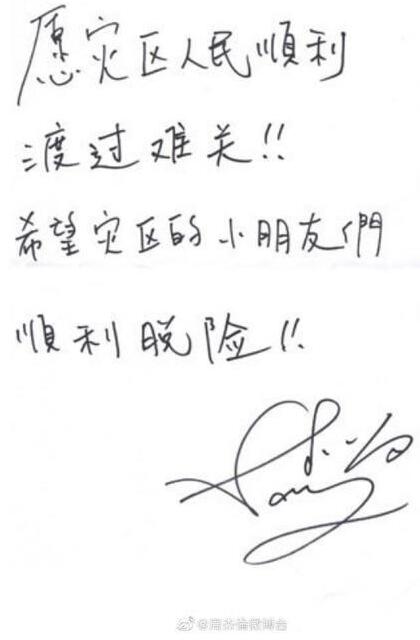 愿灾区人民順利
渡过难关!!
希望灾区的小朋友們
順利脱险!!
@周杰倫微博台